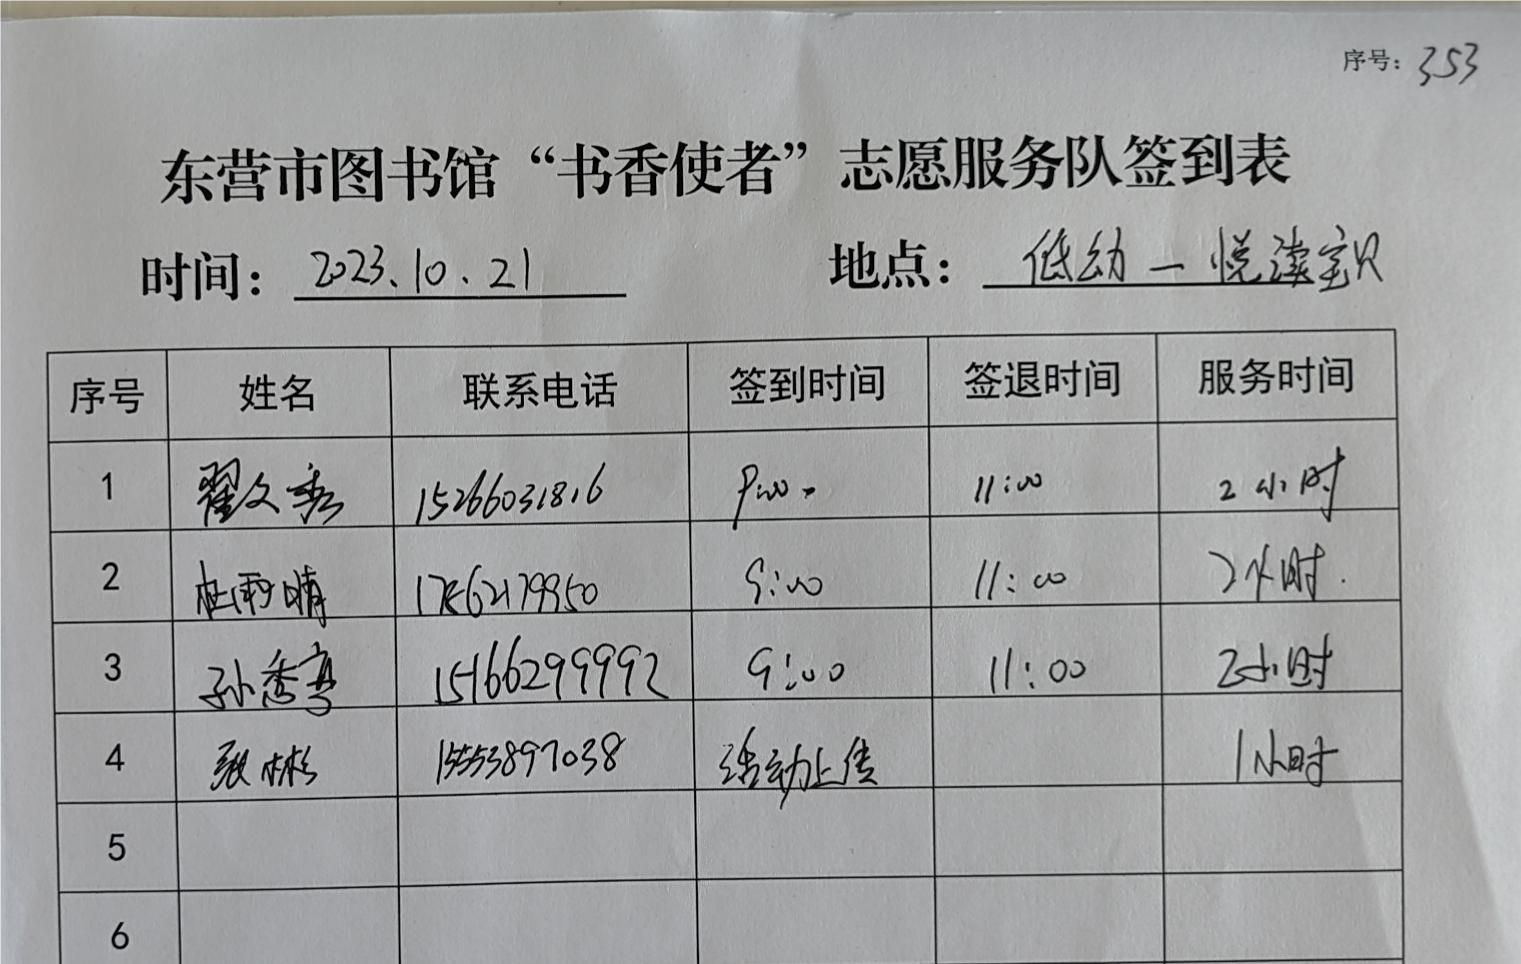 序号：353
东营市图书馆“书香使者”志愿服务队签到表
时间：2023.10.21 地点：低幼—悦读宝贝
序号 姓名 联系电话 签到时间 签退时间 服务时间
1 翟文秀 15266031816 9:00. 11:00 2小时
2 杜雨晴 17862179950 9:00 11:00 2小时.
3 孙秀亭 15166299992 9:00 11:00 2小时
4 张彬彬 15553897038 活动上传 1小时
5
6